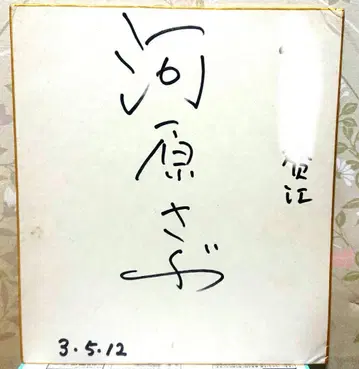 江
河原さぶ
3.5.12